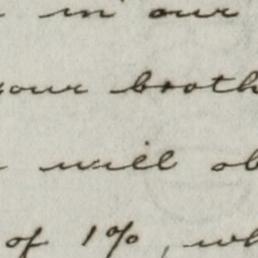 in our
your broth
will ob
of 1%, wh